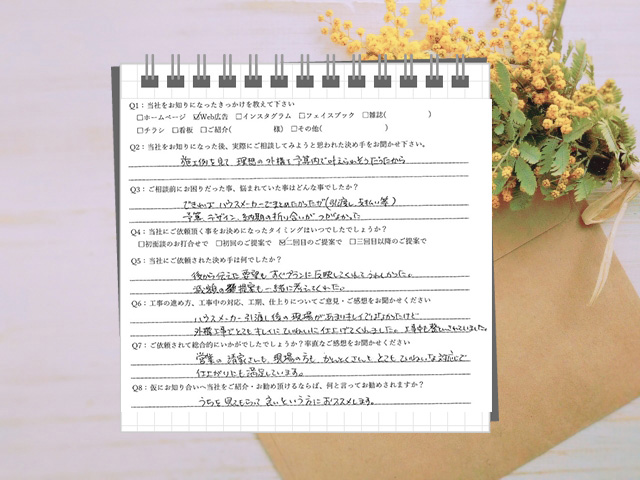 Q1：当社をお知りになったきっかけを教えて下さい
□ホームページ ☑Web広告 □インスタグラム □フェイスブック □雑誌( )
□チラシ □看板 □ご紹介( 様) □その他( )
Q2：当社をお知りになった後、実際にご相談してみようと思われた決め手をお聞かせ下さい。
施工例を見て、理想の外構を予算内で叶えられそうだったから
Q3：ご相談前にお困りだった事、悩まれていた事はどんな事でしたか？
できればハウスメーカーでまとめたかったが(引渡し、支払い等)
予算、デザイン、納期の折り合いがつかなかった
Q4：当社にご依頼頂く事をお決めになったタイミングはいつでしたでしょうか？
□初面談のお打合せで □初回のご提案で ☑二回目のご提案で □三回目以降のご提案で
Q5：当社にご依頼された決め手は何でしたか？
後から伝えた要望もすぐプランに反映してくれてうれしかった。
減額の提案も一緒に考えてくれた。
Q6：工事の進め方、工事中の対応、工期、仕上りについてご意見・ご感想をお聞かせください
ハウスメーカー引渡し後の現場があまりキレイではなかったけど
外構工事でとてもキレイにていねいに仕上げてくれました。工事中も整とんされていました。
Q7：ご依頼されて総合的にいかがでしたでしょうか？率直なご感想をお聞かせください
営業の清家さんも、現場の方も、がいしくさんも、とてもていねいな対応で
仕上がりにも満足しています。
Q8：仮にお知り合いへ当社をご紹介・お勧め頂けるならば、何と言ってお勧めされますか？
うちを見てもらって良いという方におススメします。